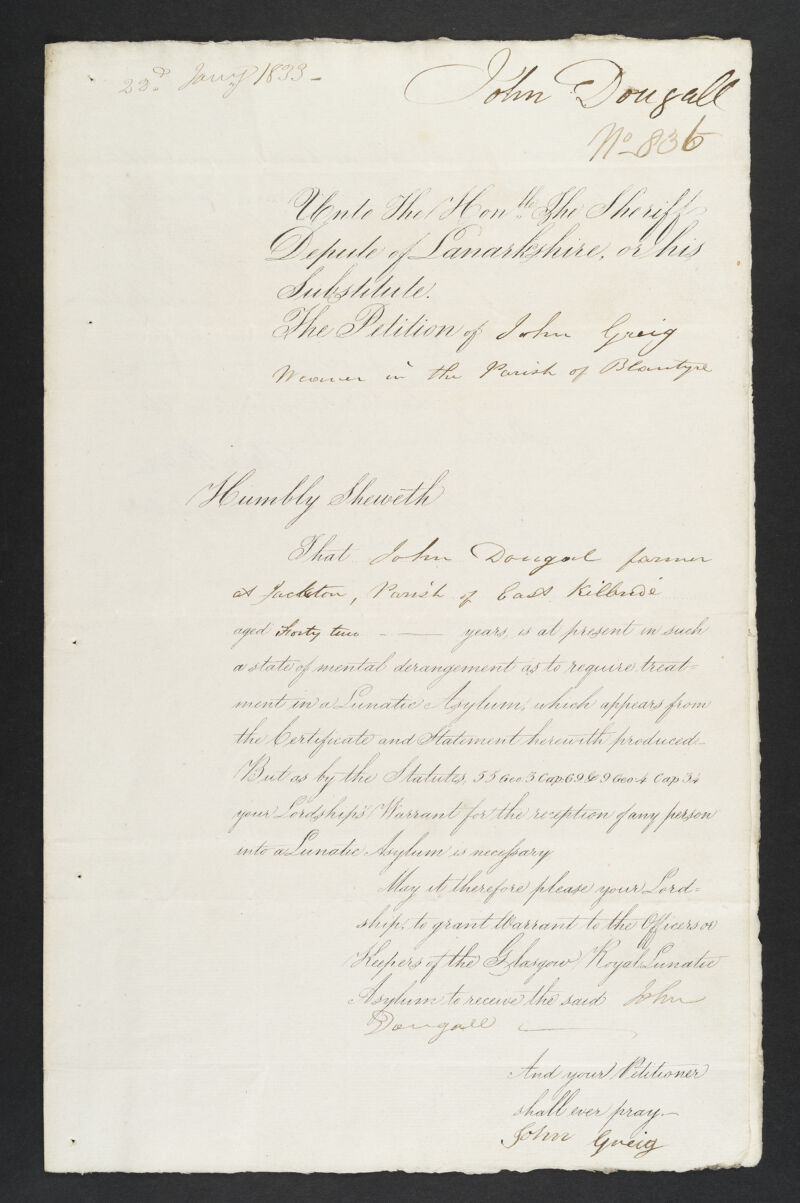 23d Jany 1833 -
John Dougall
No. 836
Unto The Honble The Sheriff
Depute of Lanarkshire, or his
Substitute.
The Petition of John Greig
Weaver in the Parish of Blantyre
Humbly Sheweth
That John Dougal farmer
at Jackton, Parish of East Kilbride
aged Forty two - — years, is at present in such
a state of mental derangement as to require treat=
ment in a Lunatic Asylum, which appears from
the Certificate and Statement herewith produced_
But as by the Statutes, 55 Geo 3 Cap 69 & 9 Geo 4 Cap 34
your Lordship's Warrant for the reception of any person
into a Lunatic Asylum is necessary
May it therefore please your Lord=
ship, to grant Warrant to the Officers or
Keepers of the Glasgow Royal Lunatic
Asylum to receive the said John
Dougall —
And your Petitioner
shall ever pray.—
John Greig